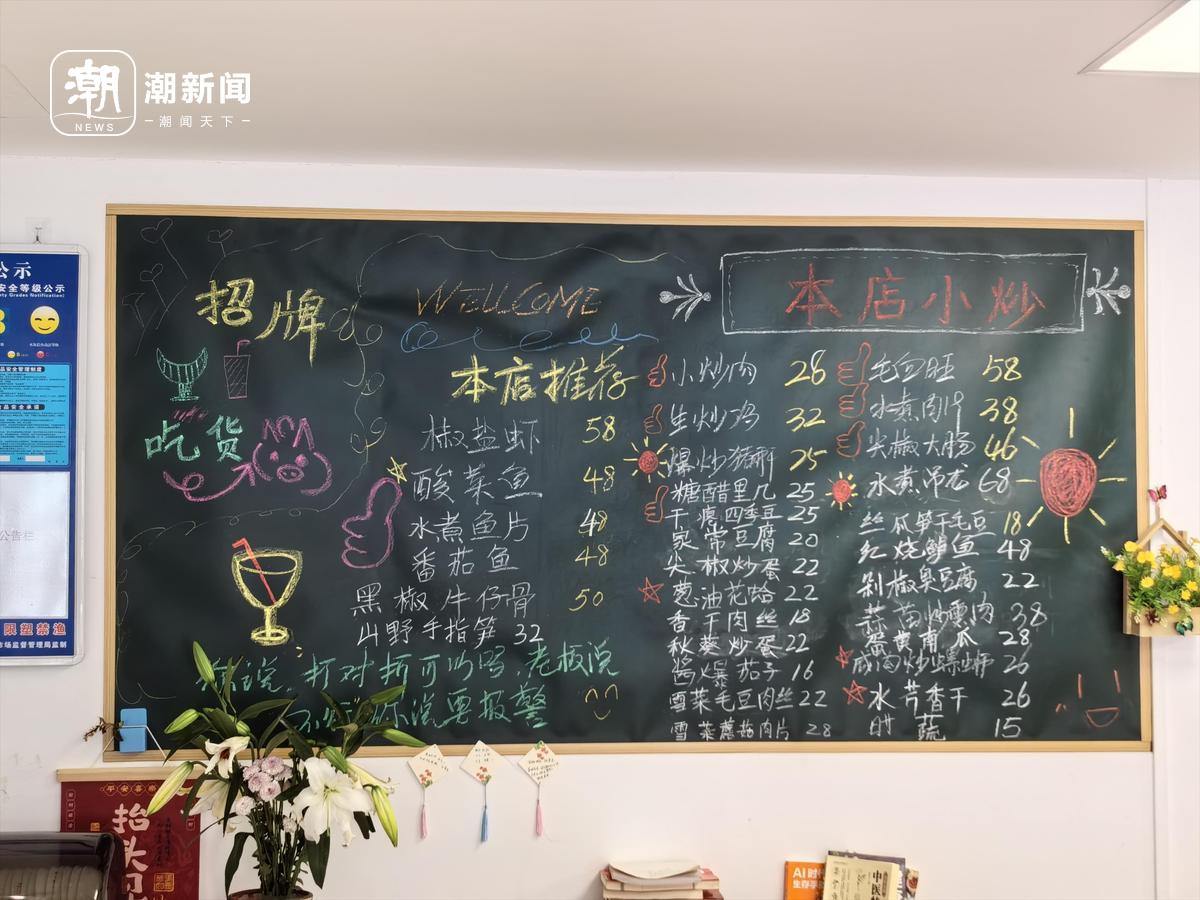 潮
NEWS
潮新闻
潮闻天下
公示
安全等级公示
限塑禁渔
市场监督管理局监制
公告栏
招牌
吃货
WELLCOME
本店推荐
椒盐虾 58
酸菜鱼 48
水煮鱼片 48
番茄鱼 48
黑椒牛仔骨 50
山野手指笋 32
你说,打对折可以吗,老板说
你说要报警
本店小炒
小炒肉 28
生炒鸡 32
爆炒猪肝 25
糖醋里几 25
干煸四季豆 25
家常豆腐 20
尖椒炒蛋 22
葱油花蛤 22
香干肉丝 18
秋葵炒蛋 22
酱爆茄子 16
雪菜毛豆肉丝 22
雪菜蘑菇肉片 28
毛血旺 58
水煮肉片 38
尖椒大肠 46
水煮吊龙 68
丝瓜笋干毛豆 18
红烧鲈鱼 48
剁椒臭豆腐 22
蒜苗炒熏肉 38
蛋黄南瓜 28
咸肉炒螺蛳 26
水芹香干 26
时蔬 15
平安喜乐
抬头
AI时代
生存手
中医